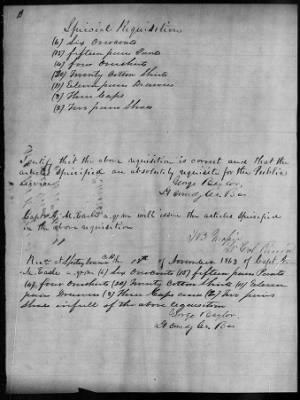 Special Requisition
(6) Six Overcoats
(15) fifteen pairs Pants
(4) four Overshirts
(20) Twenty Cotton Shirts
(11) Eleven pairs Drawers
(3) Three Caps
(2) Two pairs Shoes
I certify that the above requisition is correct and that the
articles specified are absolutely requisite for the Public
Service
George Baylor,
Lt Comdg
Capt G. M. will issue the articles specified
in the above requisition
Lt Col
Rec'd at the 18th of November 1863 of Capt G.
M. (6) Six Overcoats (15) fifteen pairs Pants
(4) four Overshirts (20) Twenty Cotton Shirts (11) Eleven
pairs Drawers (3) Three Caps and (2) Two pairs
Shoes in full of the above requisition
George Baylor
Lt Comdg